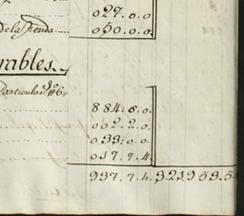 027..0..0
de la Tienda..... 050..0..0
rables.
Particular
884..6..0.
002..2..0.
033..0..0.
017..7..4.
937..7..4. 3219